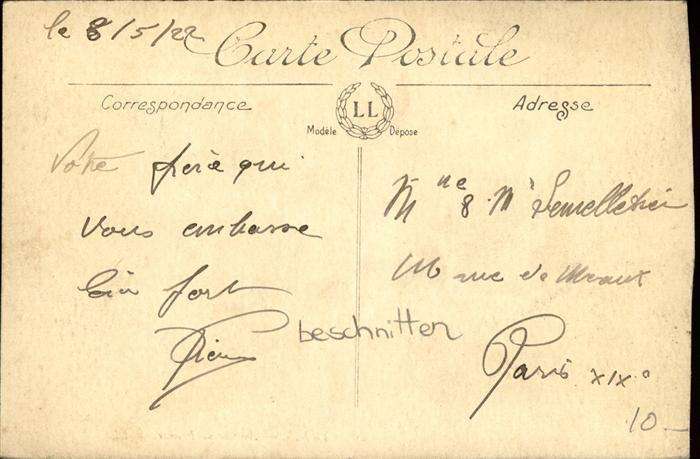 le 8/5/22
Carte Postale
Correspondance
Adresse
LL
Modèle Déposé
Votre frère qui
vous embrasse
bien fort
Pierre
Mme & Mr
rue de Meaux
Paris XIXo
beschnitten
10